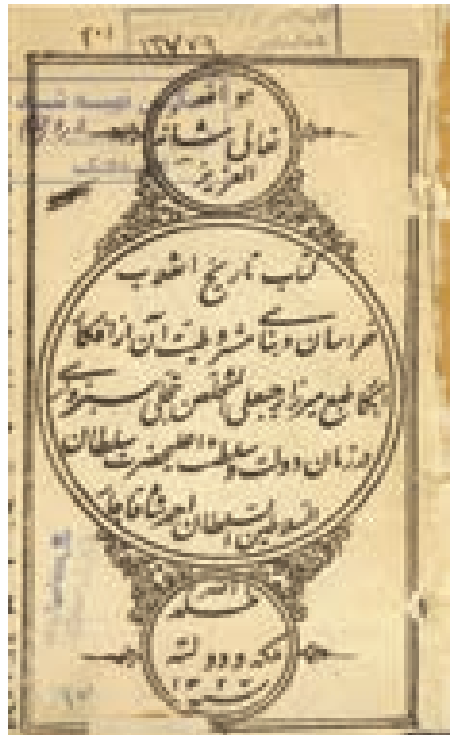 هو الله
تعالی شانه
العزیز
کتاب تاریخ انقلاب
خراسان و بنای مشروطیت آن از افکار
ابکار طبع میرزا رجبعلی المتخلص تجلی سبزواری
در زمان دولت و سلطنت اعلیحضرت سلطان
السلاطین السلطان احمد شاه قاجار
خلد الله
ملکه و دولته